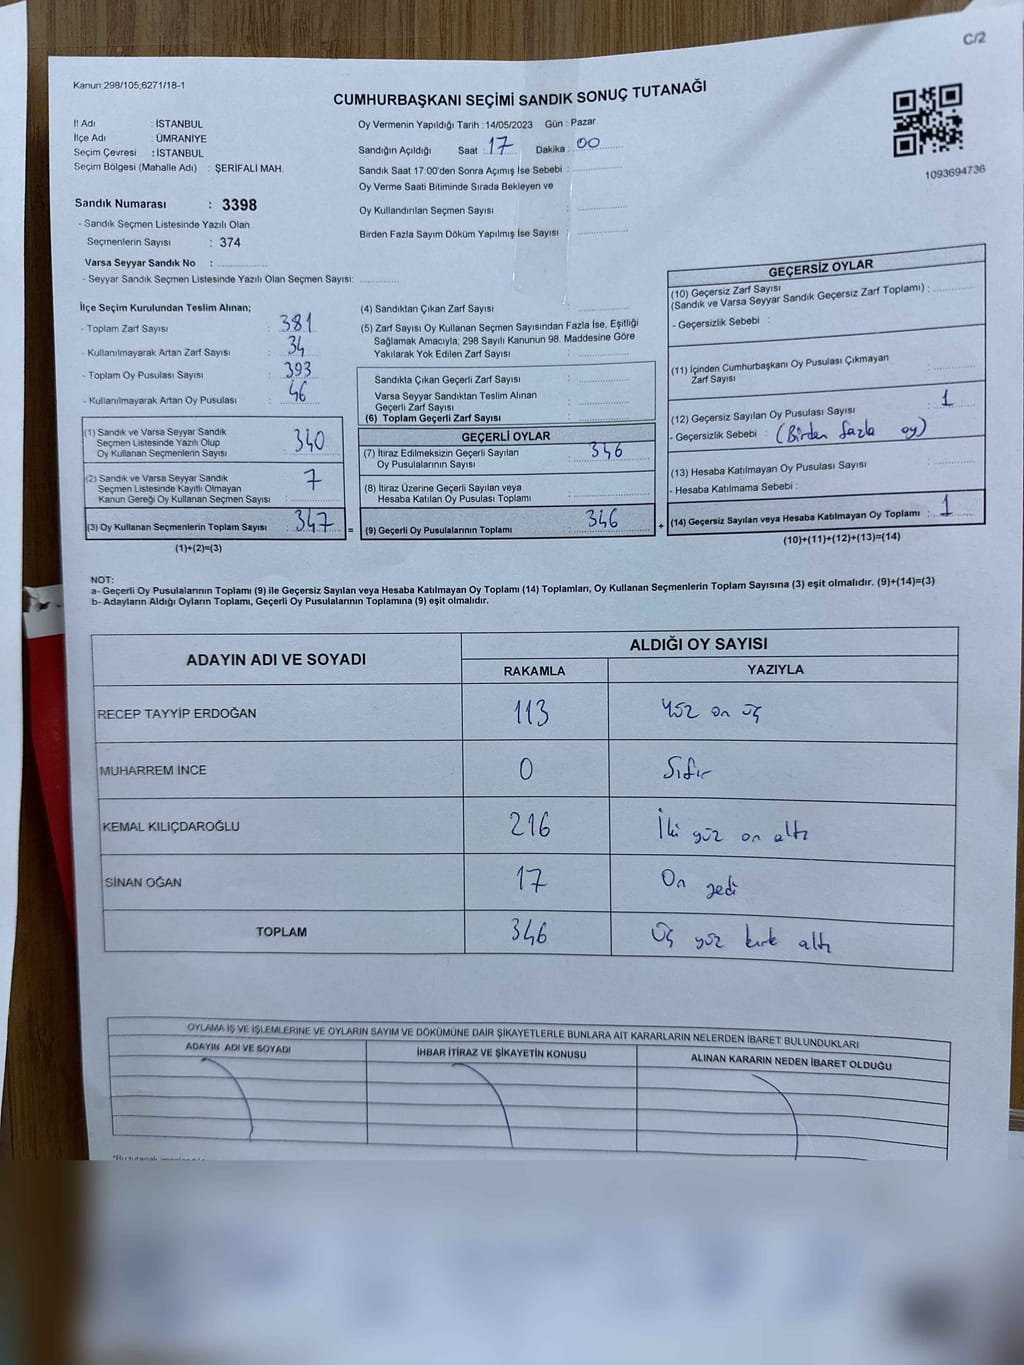 C/2
Kanun 298/105,6271/18-1
CUMHURBAŞKANI SEÇİMİ SANDIK SONUÇ TUTANAĞI
1093694736
İl Adı : İSTANBUL
İlçe Adı : ÜMRANİYE
Seçim Çevresi : İSTANBUL
Seçim Bölgesi (Mahalle Adı) : ŞERİFALİ MAH.
Sandık Numarası : 3398
- Sandık Seçmen Listesinde Yazılı Olan
Seçmenlerin Sayısı : 374
Varsa Seyyar Sandık No :
- Seyyar Sandık Seçmen Listesinde Yazılı Olan Seçmen Sayısı:
Oy Vermenin Yapıldığı Tarih : 14/05/2023 Gün : Pazar
Sandığın Açıldığı Saat : 17 Dakika : 00
Sandık Saat 17:00'den Sonra Açımış İse Sebebi :
Oy Verme Saati Bitiminde Sırada Bekleyen ve
Oy Kullandırılan Seçmen Sayısı :
Birden Fazla Sayım Döküm Yapılmış İse Sayısı :
İlçe Seçim Kurulundan Teslim Alınan;
- Toplam Zarf Sayısı : 381
- Kullanılmayarak Artan Zarf Sayısı : 34
- Toplam Oy Pusulası Sayısı : 393
- Kullanılmayarak Artan Oy Pusulası : 46
(1) Sandık ve Varsa Seyyar Sandık
Seçmen Listesinde Yazılı Olup
Oy Kullanan Seçmenlerin Sayısı : 340
(2) Sandık ve Varsa Seyyar Sandık
Seçmen Listesinde Kayıtlı Olmayan
Kanun Gereği Oy Kullanan Seçmen Sayısı : 7
(3) Oy Kullanan Seçmenlerin Toplam Sayısı : 347 =
(1)+(2)=(3)
(4) Sandıktan Çıkan Zarf Sayısı :
(5) Zarf Sayısı Oy Kullanan Seçmen Sayısından Fazla İse, Eşitliği
Sağlamak Amacıyla; 298 Sayılı Kanunun 98. Maddesine Göre
Yakılarak Yok Edilen Zarf Sayısı :
Sandıkta Çıkan Geçerli Zarf Sayısı :
Varsa Seyyar Sandıktan Teslim Alınan
Geçerli Zarf Sayısı :
(6) Toplam Geçerli Zarf Sayısı :
GEÇERLİ OYLAR
(7) İtiraz Edilmeksizin Geçerli Sayılan
Oy Pusulalarının Sayısı : 346
(8) İtiraz Üzerine Geçerli Sayılan veya
Hesaba Katılan Oy Pusulası Toplamı :
(9) Geçerli Oy Pusulalarının Toplamı : 346 +
GEÇERSİZ OYLAR
(10) Geçersiz Zarf Sayısı
(Sandık ve Varsa Seyyar Sandık Geçersiz Zarf Toplamı) :
- Geçersizlik Sebebi :
(11) İçinden Cumhurbaşkanı Oy Pusulası Çıkmayan
Zarf Sayısı :
(12) Geçersiz Sayılan Oy Pusulası Sayısı : 1
- Geçersizlik Sebebi : (Birden fazla oy)
(13) Hesaba Katılmayan Oy Pusulası Sayısı :
- Hesaba Katılmama Sebebi :
(14) Geçersiz Sayılan veya Hesaba Katılmayan Oy Toplamı : 1
(10)+(11)+(12)+(13)=(14)
NOT:
a- Geçerli Oy Pusulalarının Toplamı (9) ile Geçersiz Sayılan veya Hesaba Katılmayan Oy Toplamı (14) Toplamları, Oy Kullanan Seçmenlerin Toplam Sayısına (3) eşit olmalıdır. (9)+(14)=(3)
b- Adayların Aldığı Oyların Toplamı, Geçerli Oy Pusulalarının Toplamına (9) eşit olmalıdır.
ADAYIN ADI VE SOYADI ALDIĞI OY SAYISI
RAKAMLA YAZIYLA
RECEP TAYYİP ERDOĞAN 113 Yüz on üç
MUHARREM İNCE 0 Sıfır
KEMAL KILIÇDAROĞLU 216 İki yüz on altı
SİNAN OĞAN 17 On yedi
TOPLAM 346 Üç yüz kırk altı
OYLAMA İŞ VE İŞLEMLERİNE VE OYLARIN SAYIM VE DÖKÜMÜNE DAİR ŞİKAYETLERLE BUNLARA AİT KARARLARIN NELERDEN İBARET BULUNDUKLARI
ADAYIN ADI VE SOYADI İHBAR İTİRAZ VE ŞİKAYETİN KONUSU ALINAN KARARIN NEDEN İBARET OLDUĞU